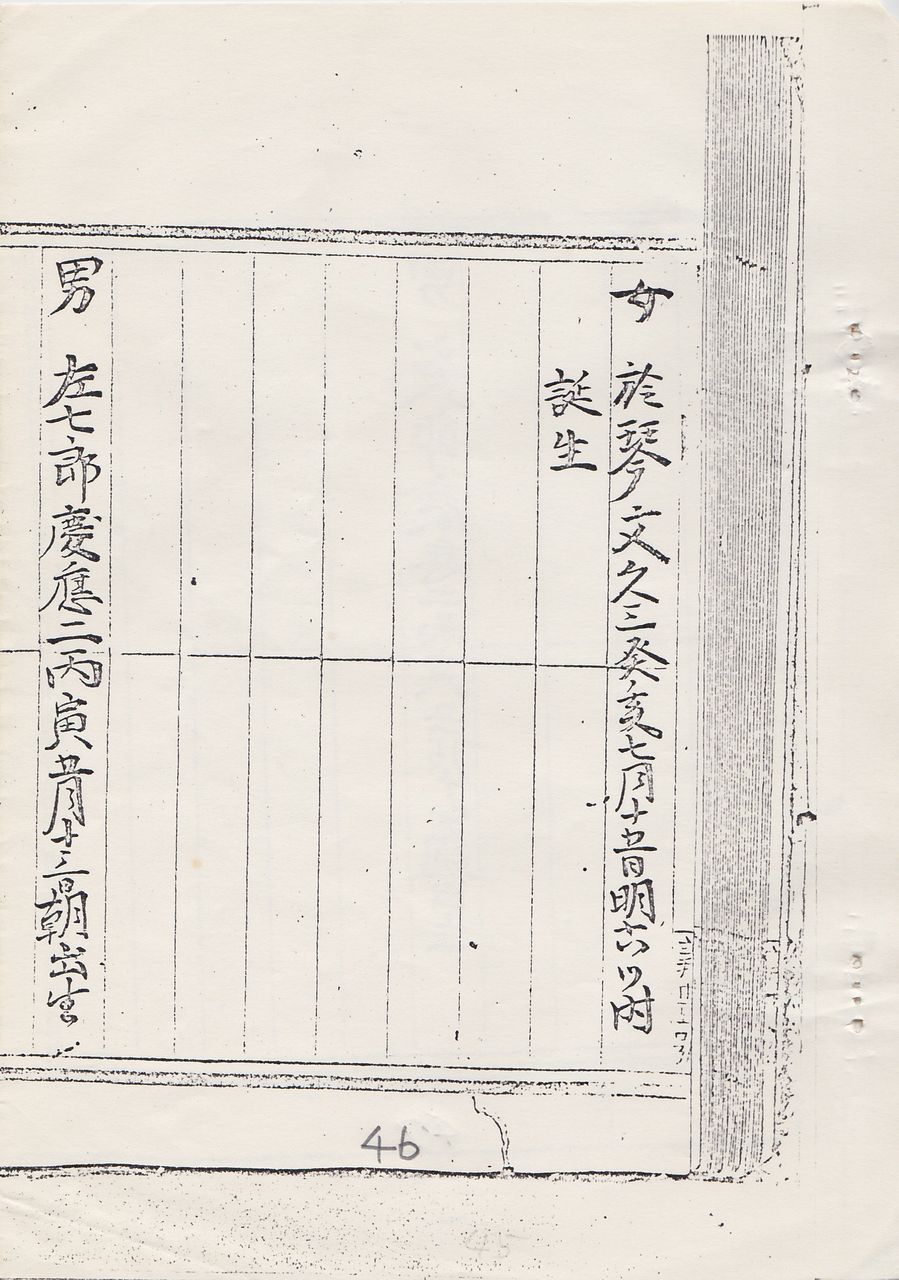 女 於琴文久三癸亥七月十五日明六ツ時
誕生
男 左七郎慶應二丙寅五月十三日朝出生
46
45